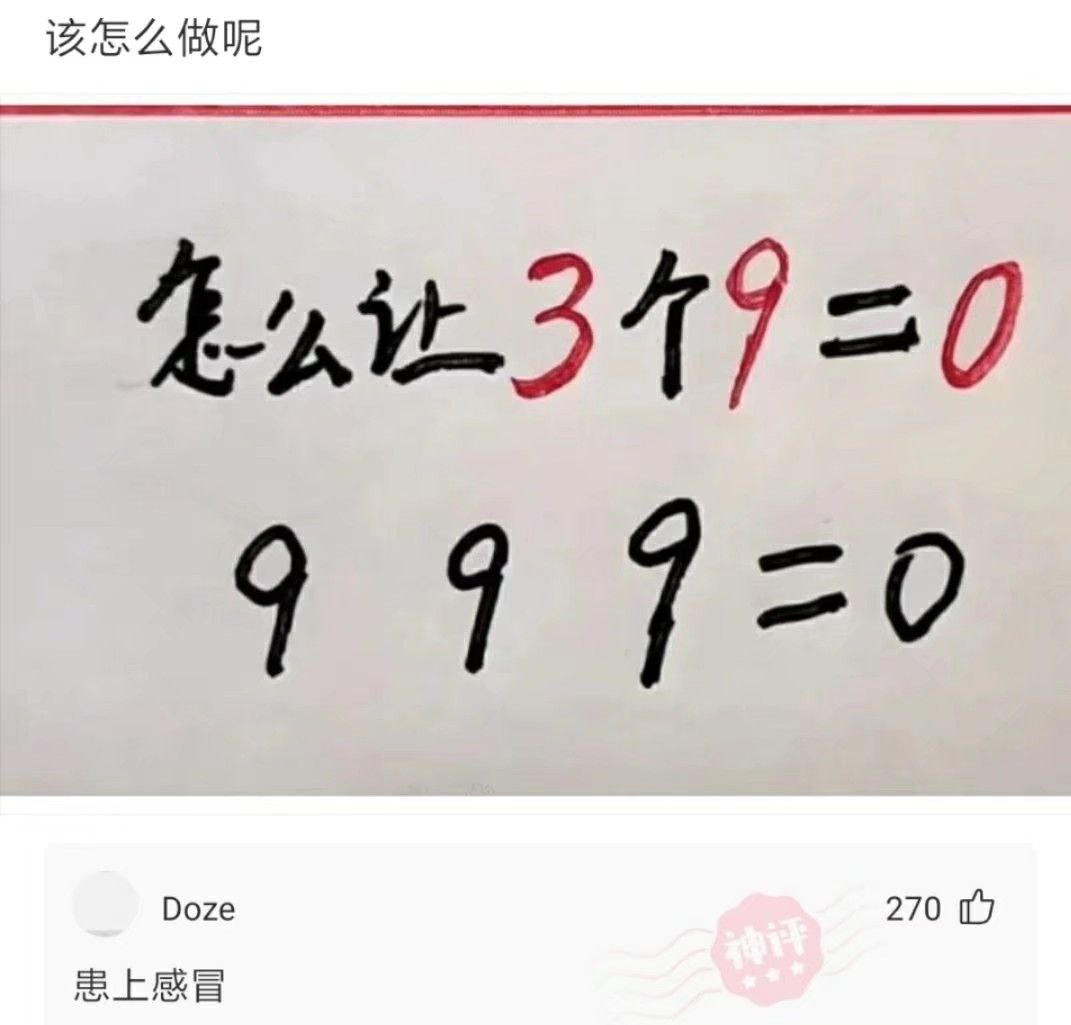 该怎么做呢
怎么让3个9=0
9 9 9=0
Doze
神评
270
患上感冒